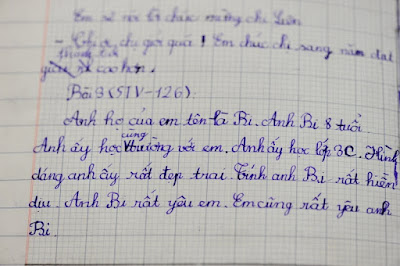 Em sẽ nói là chúc mừng chị Liên
- Chị ơi, chị giỏi quá! Em chúc chị sang năm đạt
thành tích
giải nhì cao hơn.
Bài 3 (STV-126).
Anh họ của em tên là Bi. Anh Bi 8 tuổi.
cùng
Anh ấy học trường với em. Anh ấy học lớp 3C. Hình
dáng anh ấy rất đẹp trai. Tính anh Bi rất hiền
dịu. Anh Bi rất yêu em. Em cũng rất yêu anh
Bi.